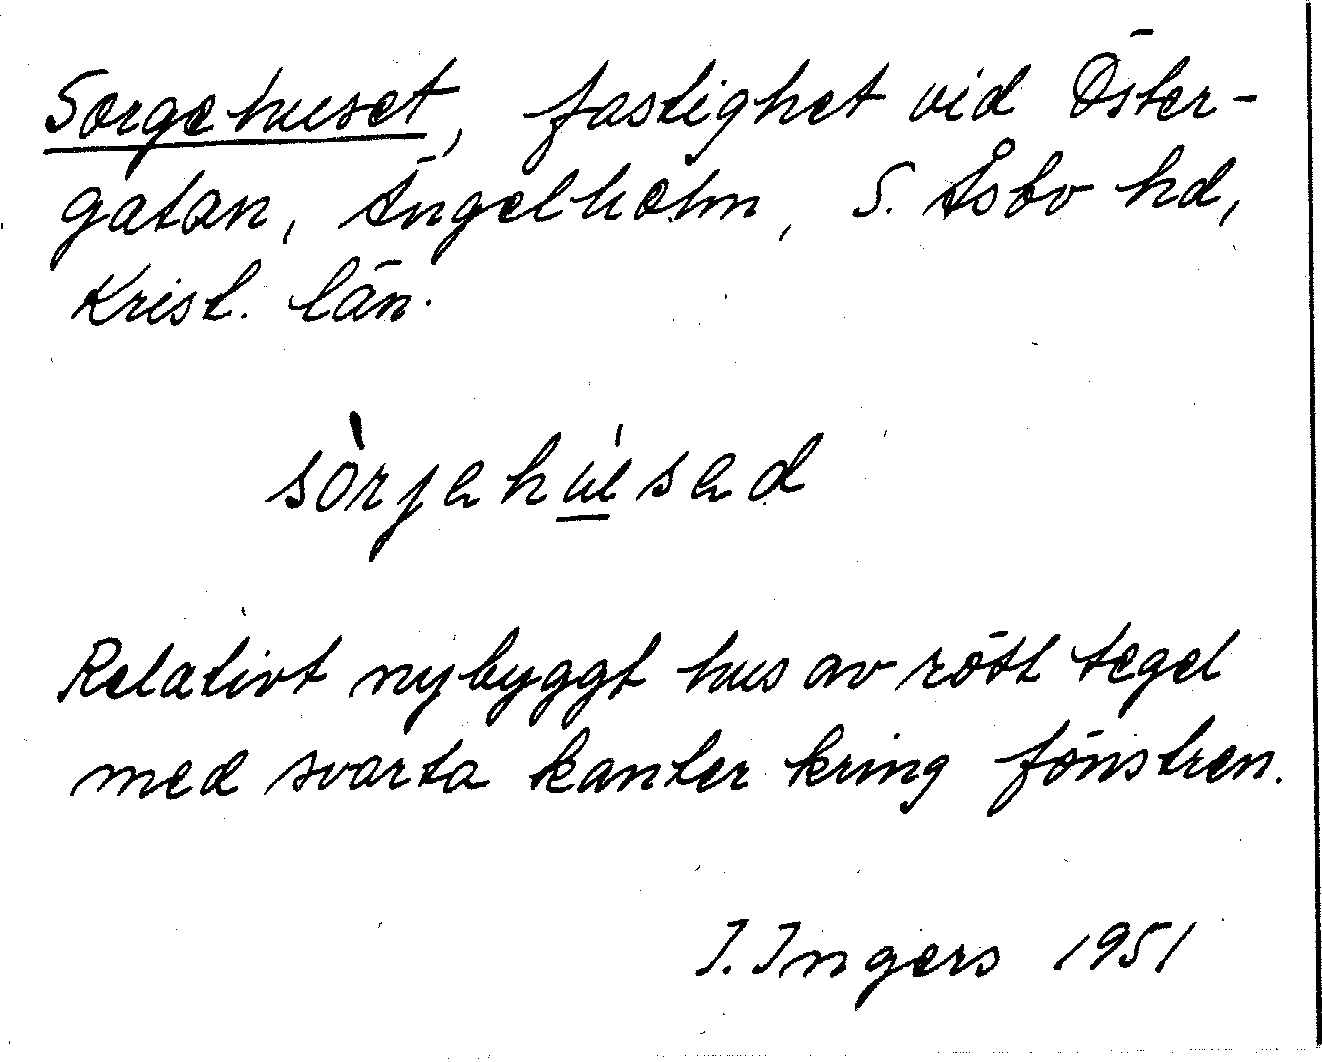 Sorgehuset, fastighet vid Öster-
gatan, Ängelholm, S. Åsbo hd,
Krist. län.
sòrjehúsed
Relativt nybyggt hus av rött tegel
med svarta kanter kring fönstren.
I. Ingers 1951